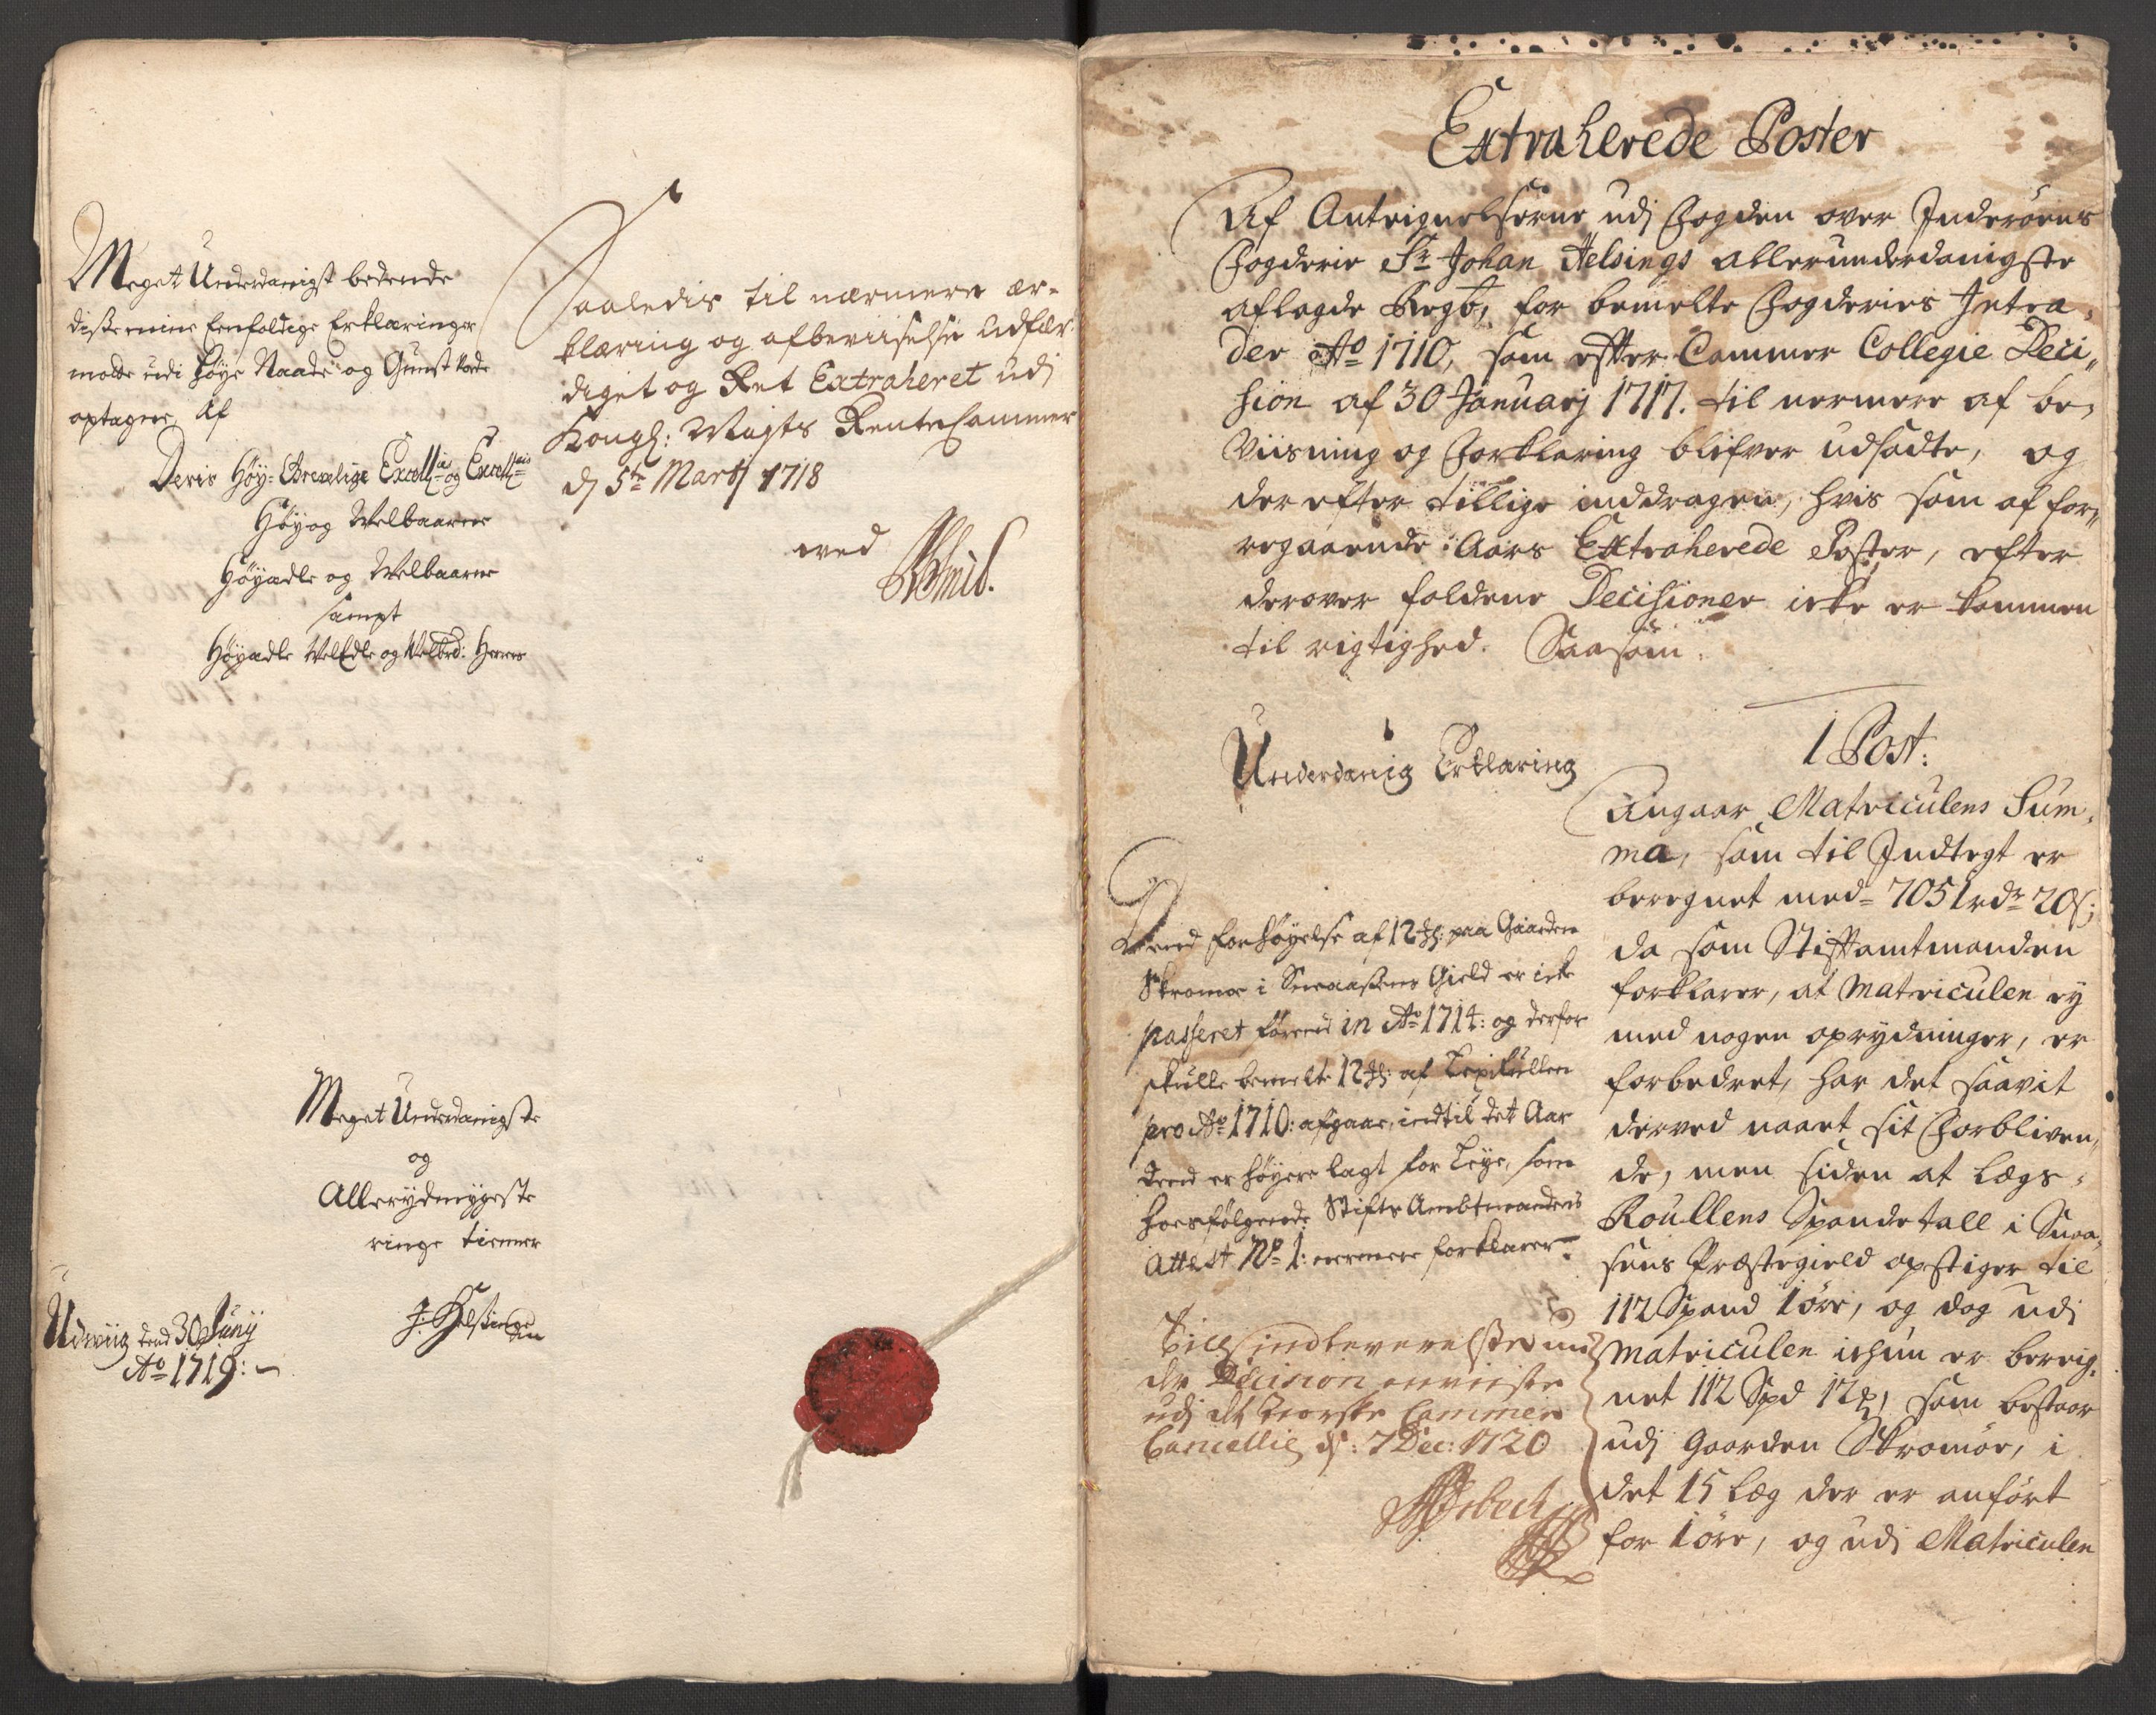 Meget Underdanigst bedende
disse mine Eenfoldige Erklaringer
maatte udi Høye Naade og Gunst vorde
optagne, Af
Deris Høy-Grevelige Excell: og Excell:
Høy og Welbaarne
Høyædle og Welbaarne
sampt
Høyædle WelEdle og Welbrd: Herrer
Meget Underdanigste
og
Allerydmygeste
ringe tienner
J: Helsing
Udviig dend 30 Juny
Ao 1719:
Saaledis til nærmere er-
klæring og afbeviiselse udfær-
diget og Ret Extraheret udi
Kongl: Mayts RenteCammer
d 5te Martj 1718
med
Extraherede Poster
Af Antegnelserne udj Fogden over Inderøens
Fogderie Sr Johan Helsings allerunderdanigste
aflagde Regb, for bemelte Fogderies Intra,
der Ao 1710, som efter Cammer Collegie Deci,,
sion af 30 Januarj 1717. til nermere af be,
Viisning og Forklaring blifver udsadte, og
derefter tillige inddragen, hvis som af for,,
regaaende Aars Extraherede Poster, efter
derover faldene Decisioner icke er kommen
til rigtighed. Saasom.
Underdanig Erklaring
Dend forhøyelse af 12 paa Gaarden
Skromoe i Snaasens Gield er icke
passeret førend in Ao 1714: og derfor
skulle bemelte 12 af
pro Ao 1710: afgaae, indtil det Aar
dend er høyere lagt for Leye, som
hoesfølgende Stifts Ambtmandens
Attest No 1: nermere forklarer
indleverelse
de Decision anviiste
udj det Norske Cammer
Cancellie d: 7 Dec: 1720
1 Post:
Angaar Matriculens Sum,
ma, som til Indtegt er
beregnet med 7051 rdr 20 s;
da som Stiftamtmanden
forklarer, at Matriculen ey
med nogen oprydninger, er
forbedret, har det saavit
derved naaet sit Forbliven,
de, men siden at Legs,
Roullens Spandetall i Snaa,
sens Præstegield opstiger til
112 Spand 1 øre, og dog udi
Matriculen ickun er bereg,
net 112 Spd 12, som bestaar
udj Gaarden Skromoe, i
det 15 Læg der er anført
for 1 øre, og udj Matriculen